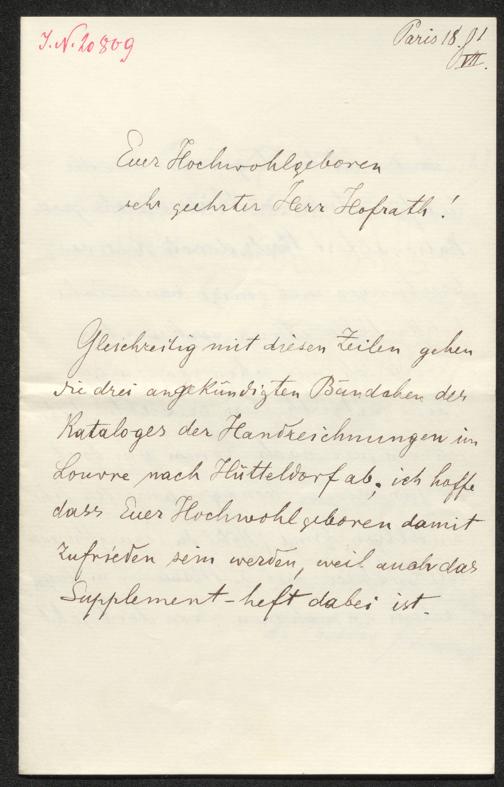 J.N. 20809
Paris 18
VII.
Euer Hochwohlgeboren
sehr geehrter Herr Hofrath!
Gleichzeitig mit diesen Zeilen gehen
die drei angekündigten Bändchen des
Kataloges der Handzeichnungen im
Louvre nach Hütteldorf ab, ich hoffe
dass Euer Hochwohlgeboren damit
zufrieden sein werden, weil auch das
Supplement-heft dabei ist.